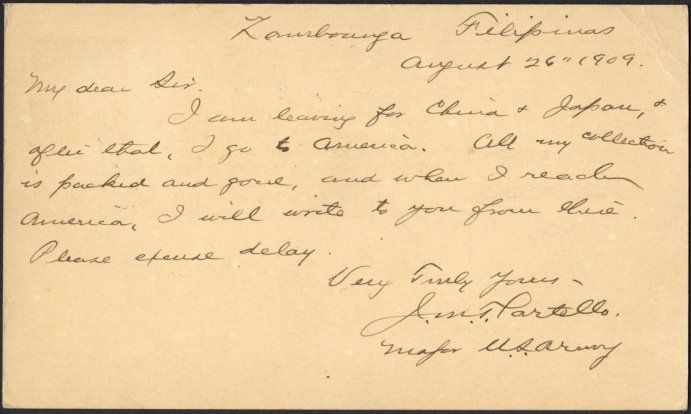 Zamboanga Filipinas
August 26" 1909.
My dear Sir.
I am leaving for China & Japan, &
after that, I go to America. All my collection
is packed and gone, and when I reach
America, I will write to you from there.
Please excuse delay.
Very Truly Yours -
J.M.T. Partello.
Major U.S. Army